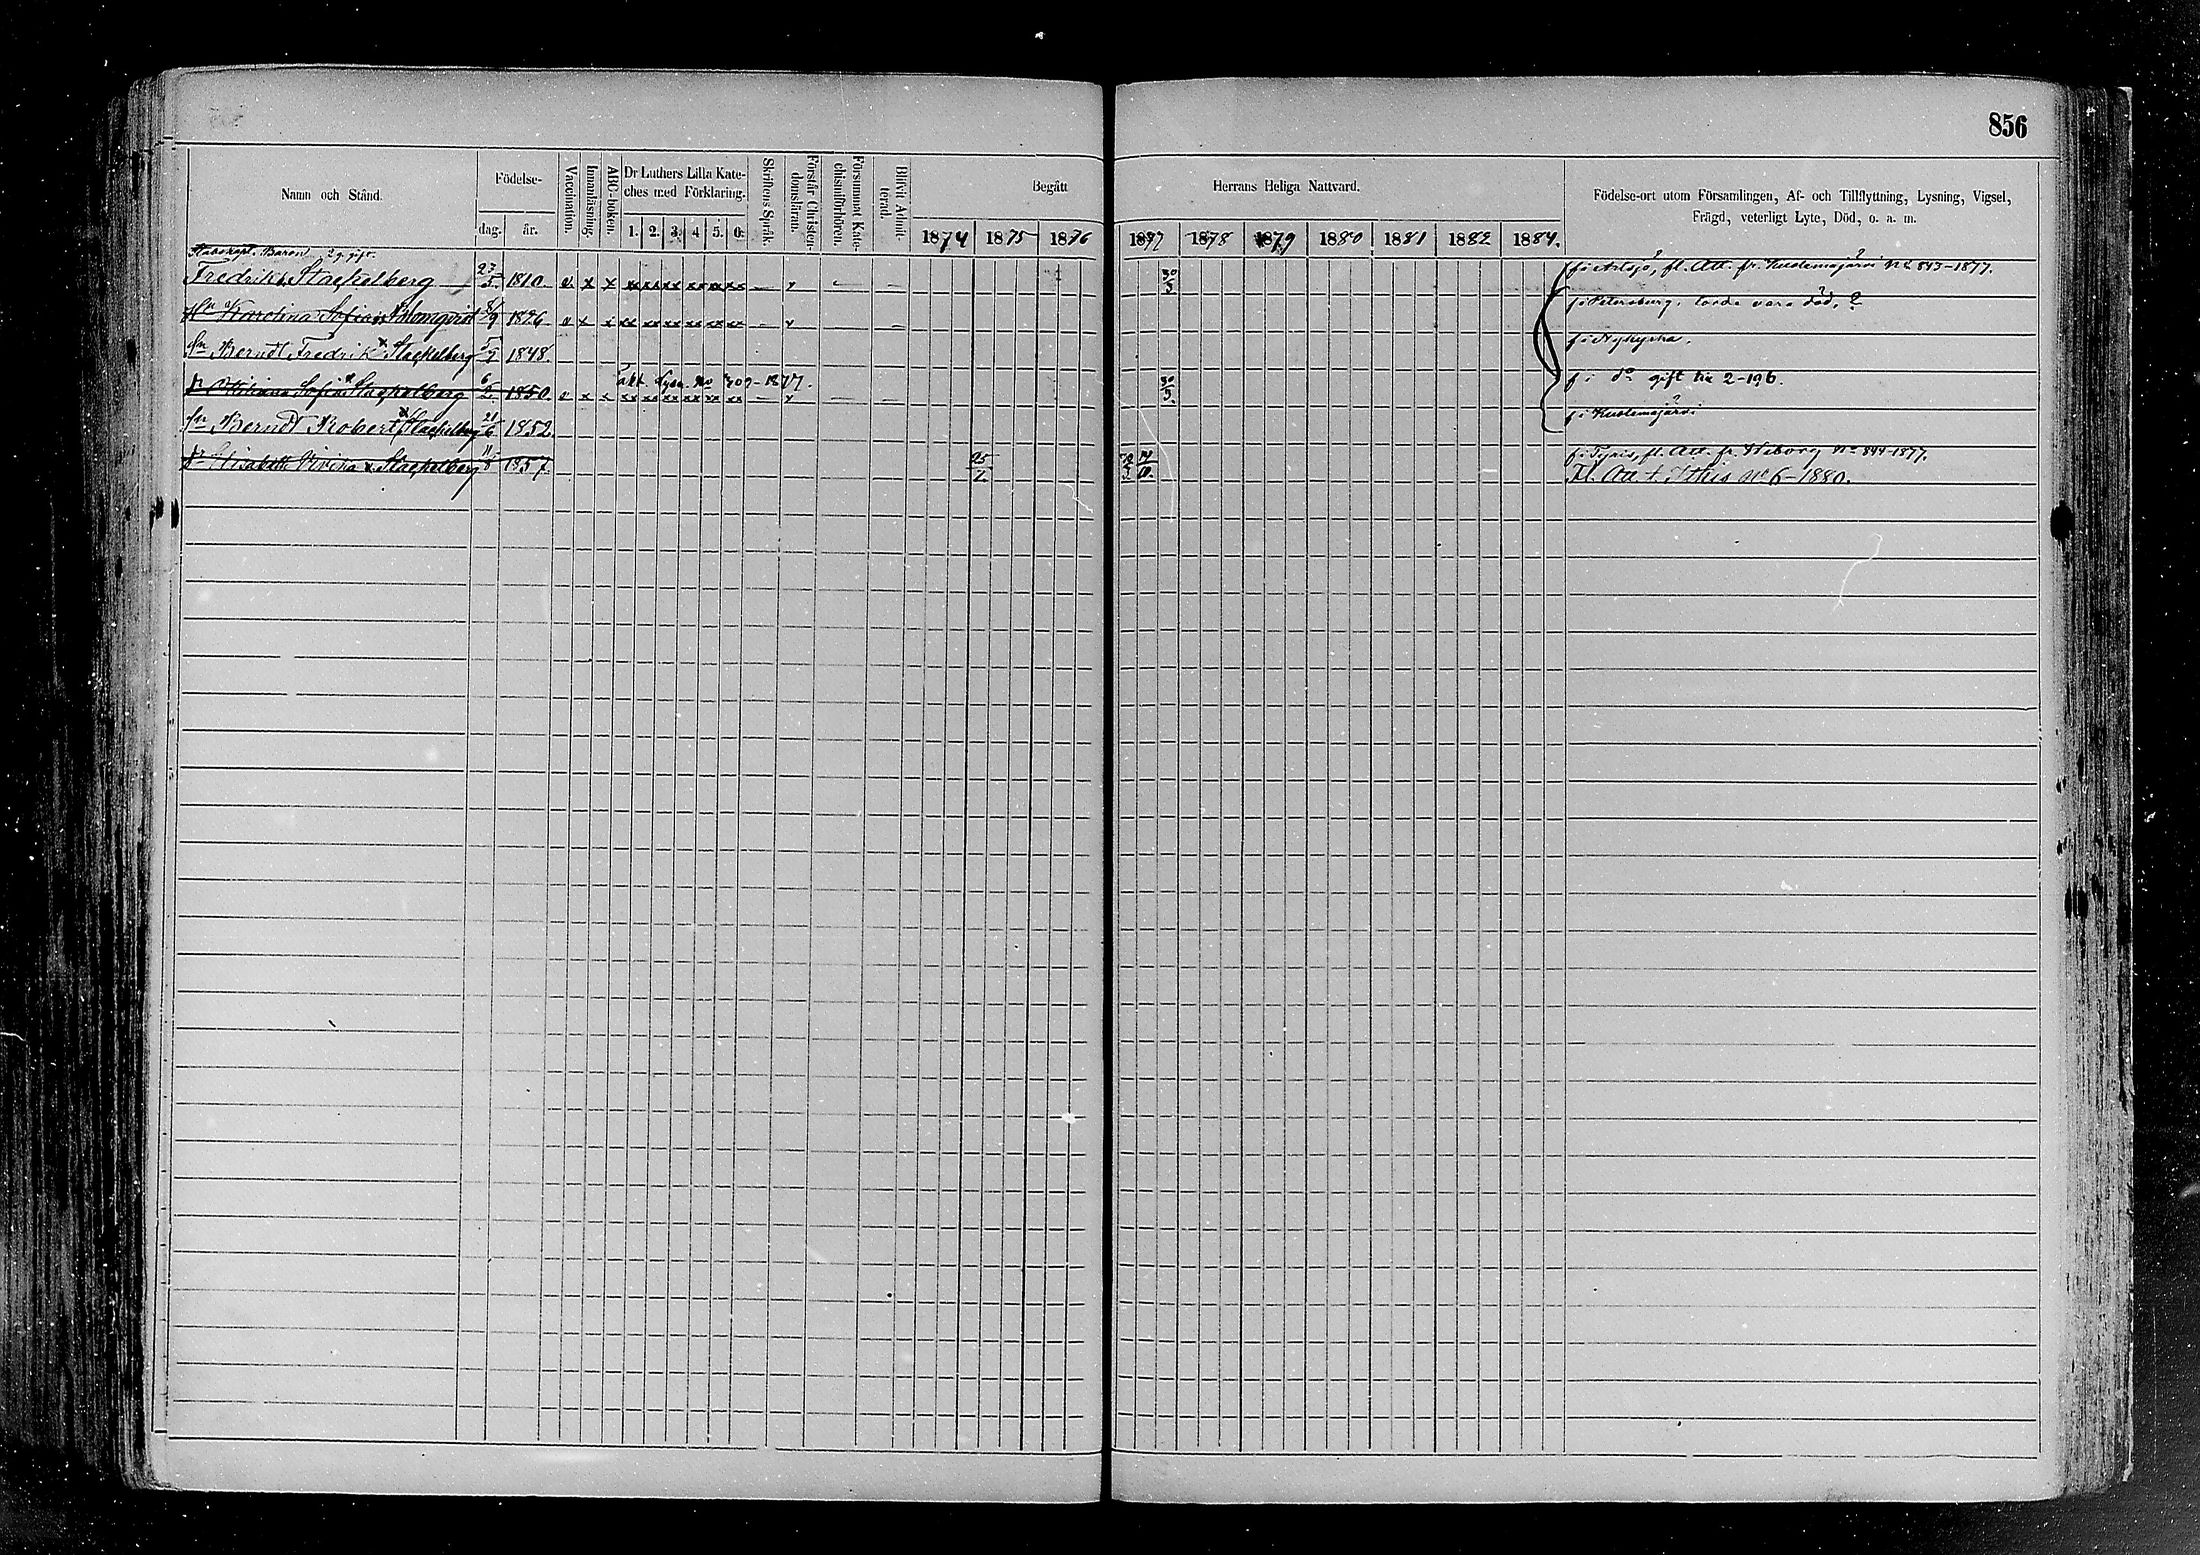 856
Namn och Stånd.
Födelse-
dag. år.
Vaccination.
Innanläsning.
ABC-boken.
Dr Luthers Lilla Kate-
ches med Förklaring.
1. 2. 3. 4 5. 0.
Skriftens Språk.
Förstår Christen-
domsläran.
Försummat Kate-
chismiförhören.
Blifvit Admit-
terad.
Begått Herrans Heliga Nattvard.
1874 1875 1876 1877 1878 1879 1880 1881 1882 1884.
Födelse-ort utom Församlingen, Af- och Tillflyttning, Lysning, Vigsel,
Frägd, veterligt Lyte, Död, o. a. m.
Stabskapt. Baron 2 g. gift.
Fredrik Stackelberg 23/5 1810. v x x xx xx xx xx xx xx — v — — 30/5 f. i Artsjö, fl. Att. fr. Kuolemajärvi No 843-1877.
Karolina Sofia Blomqvist 1826 v x x xx xx xx xx xx xx — v — f. i Petersburg. torde vara död, ?
Sn Berndt Fredrik Stackelberg 1848. f. i Nykyrka.
akt. Lysn. No 209-1877.
Sofia Stackelberg 6/2 1850. v x x xx xx xx xx xx xx — v — — 30/5. f. i do gift se 2-196.
Sn Berndt Robert Stackelberg 21/6 1852. f. i Kuolemajärvi
Dr Elisabeth Stackelberg 11/8 1857. 25/7. f. i Tyris, fl. Att. fr. Wiborg No 844-1877.
Fl. Att. t. Ithis No 6-1880.